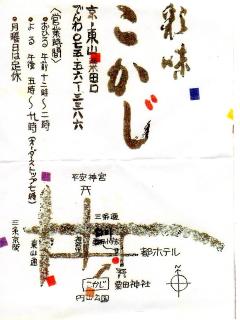 彩味
こかじ
京・東山・粟田口
でんわ〇七五-五六一-三一八六
〈営業時間〉
・おひる 午前十一時〜二時
・よる 午後五時〜九時(オーダーストップ七時)
・月曜日は定休
平安神宮
三条通
都ホテル
三条京阪
東山通
こかじ
粟田神社
円山公園